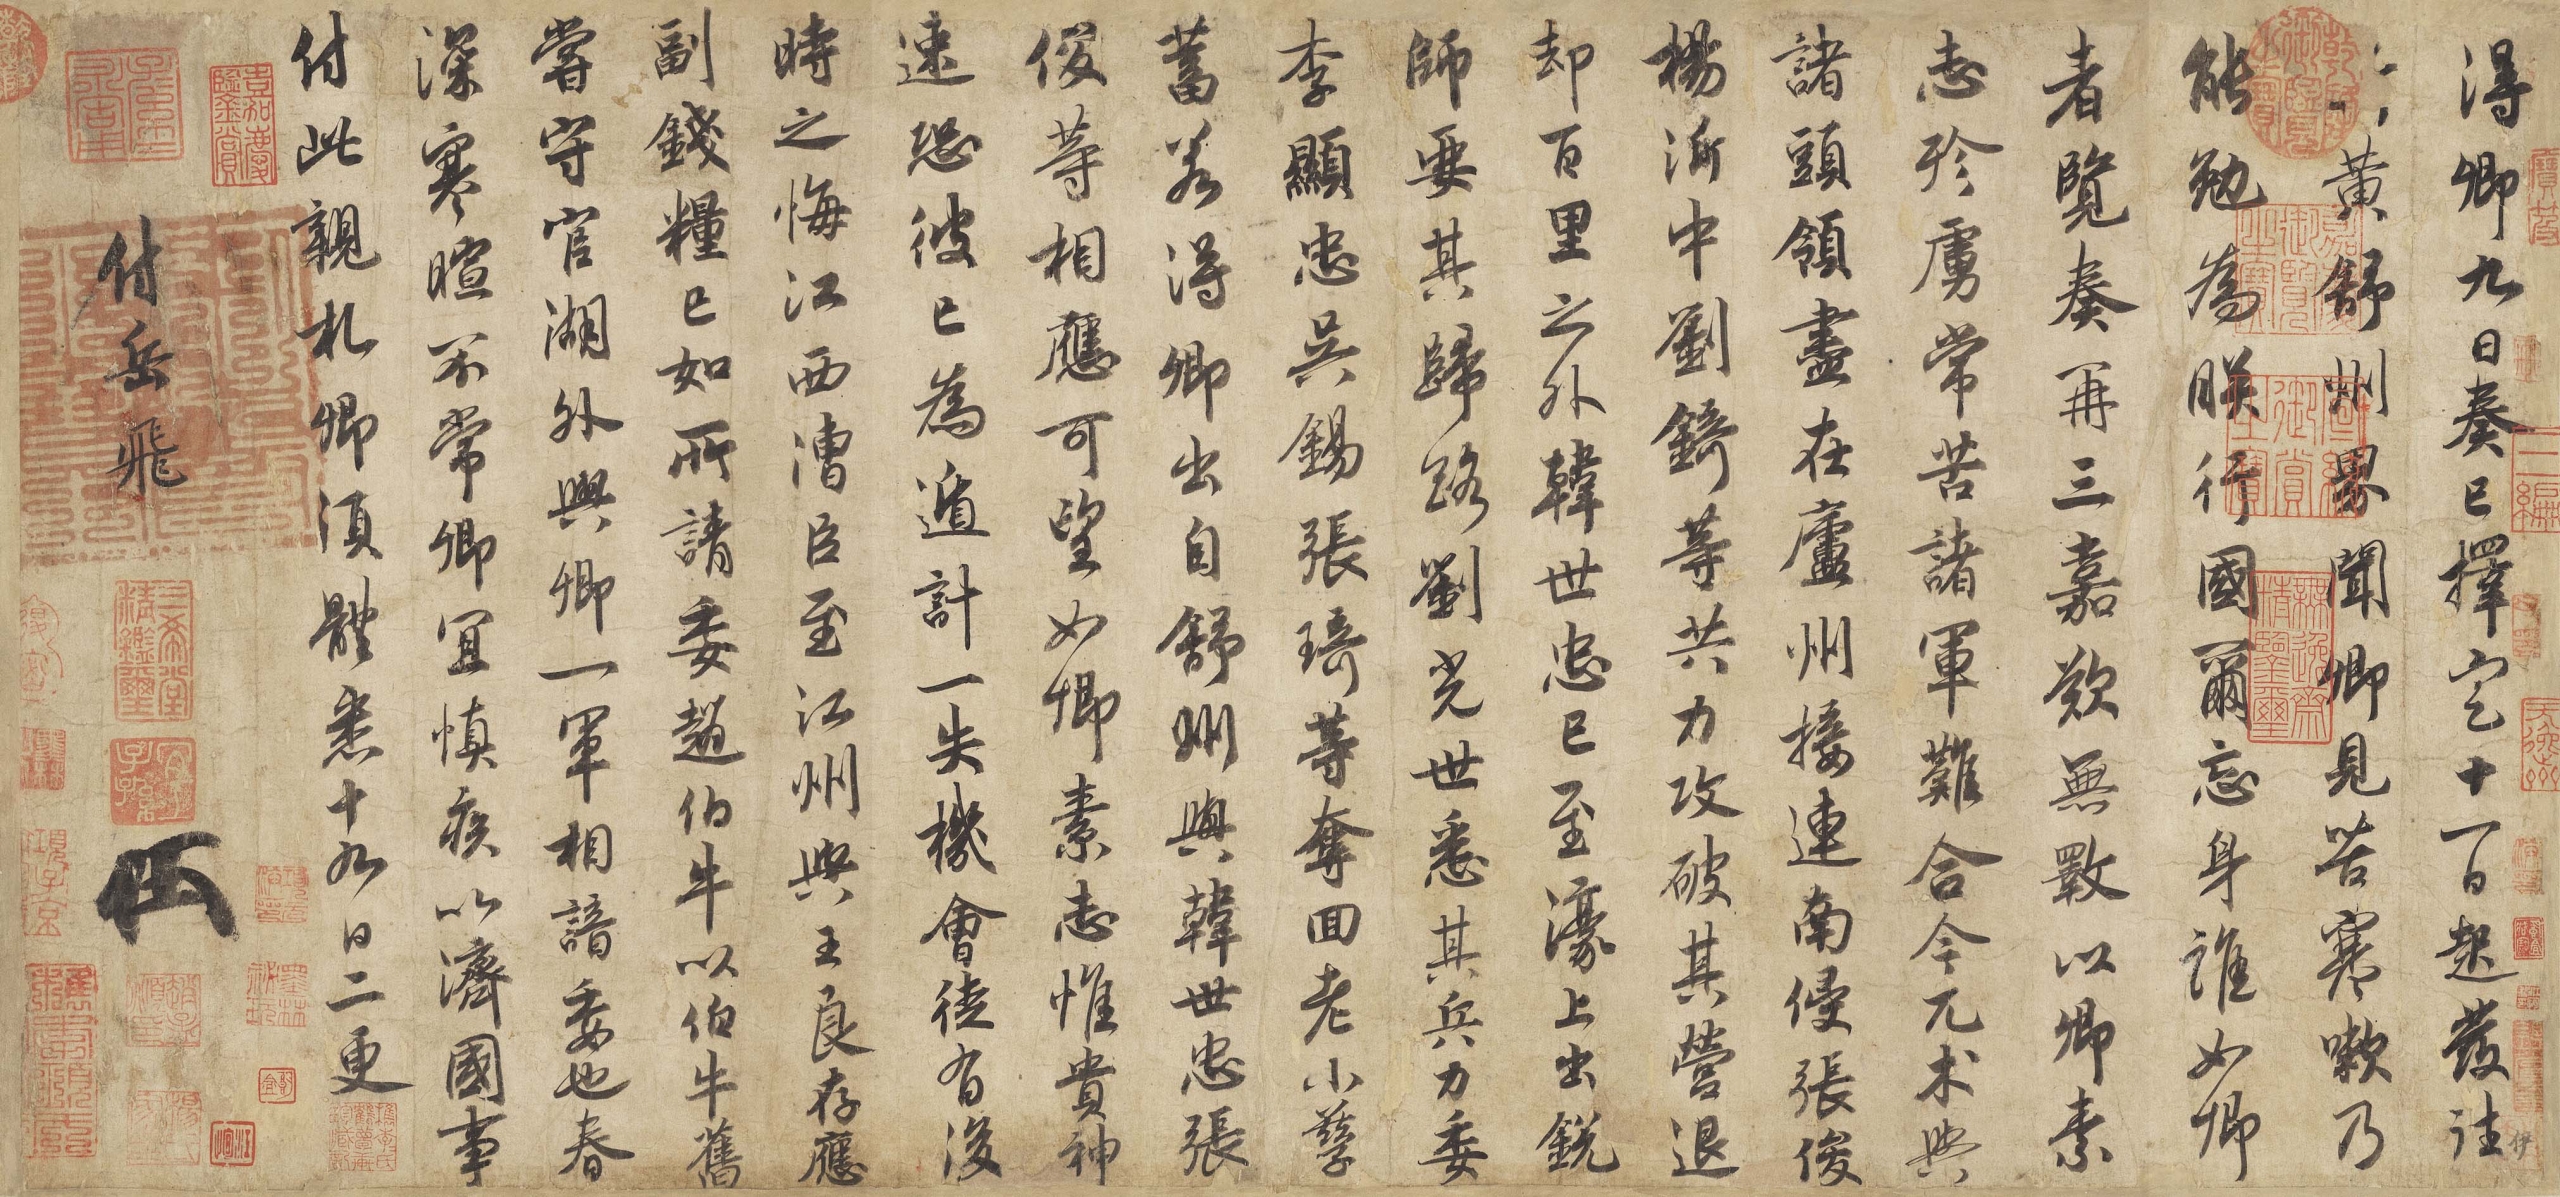 得卿九日奏已擇定十一日起發往
黃舒州界聞卿見苦寒嗽乃
能勉為朕行國爾忘身誰如卿
者覽奏再三嘉歎無斁以卿素
志殄虜常苦諸軍難合今兀朮與
諸頭領盡在廬州接連南侵張俊
楊沂中劉錡等共力攻破其營退
却百里之外韓世忠已至濠上出銳
師要其歸路劉光世悉其兵力委
李顯忠吳錫張琦等奪回老小孳
蓄若得卿出自舒州與韓世忠張
俊等相應可望如卿素志惟貴神
速恐彼已為遁計一失機會徒有後
時之悔江西漕臣至江州與王良存應
副錢糧已如所請委趙伯牛以伯牛舊
嘗守官湖外與卿一軍相諳委也春
深寒暄不常卿宜慎疾以濟國事
付此親札卿須體悉十九日二更
付岳飛